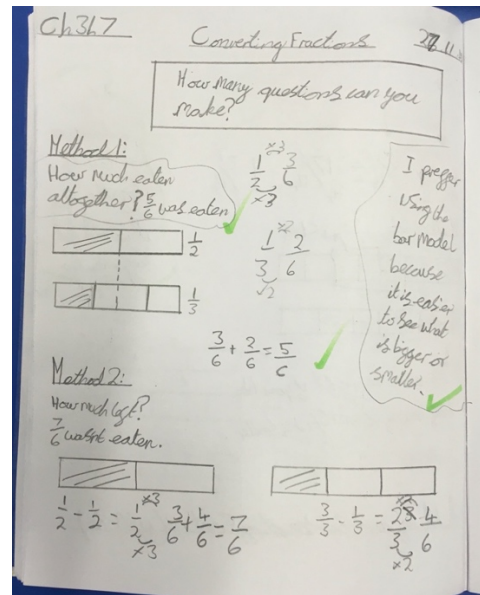 Ch3L7
Converting Fractions
How many questions can you
make?
Method 1:
How much eaten
altogether? 5/6 was eaten
1/2
1/3
×3
1/2 3/6
×3
×2
1/3 2/6
×2
3/6 + 2/6 = 5/6
I preffer
using the
bar model
because
it is easier
to see what
is bigger or
smaller.
Method 2:
How much left?
7/6 wasnt eaten.
1/2 - 1/2 = 1/2 ×3 3/6 + 4/6 = 7/6
×3
3/3 - 1/3 = 2/3 4/6
×2